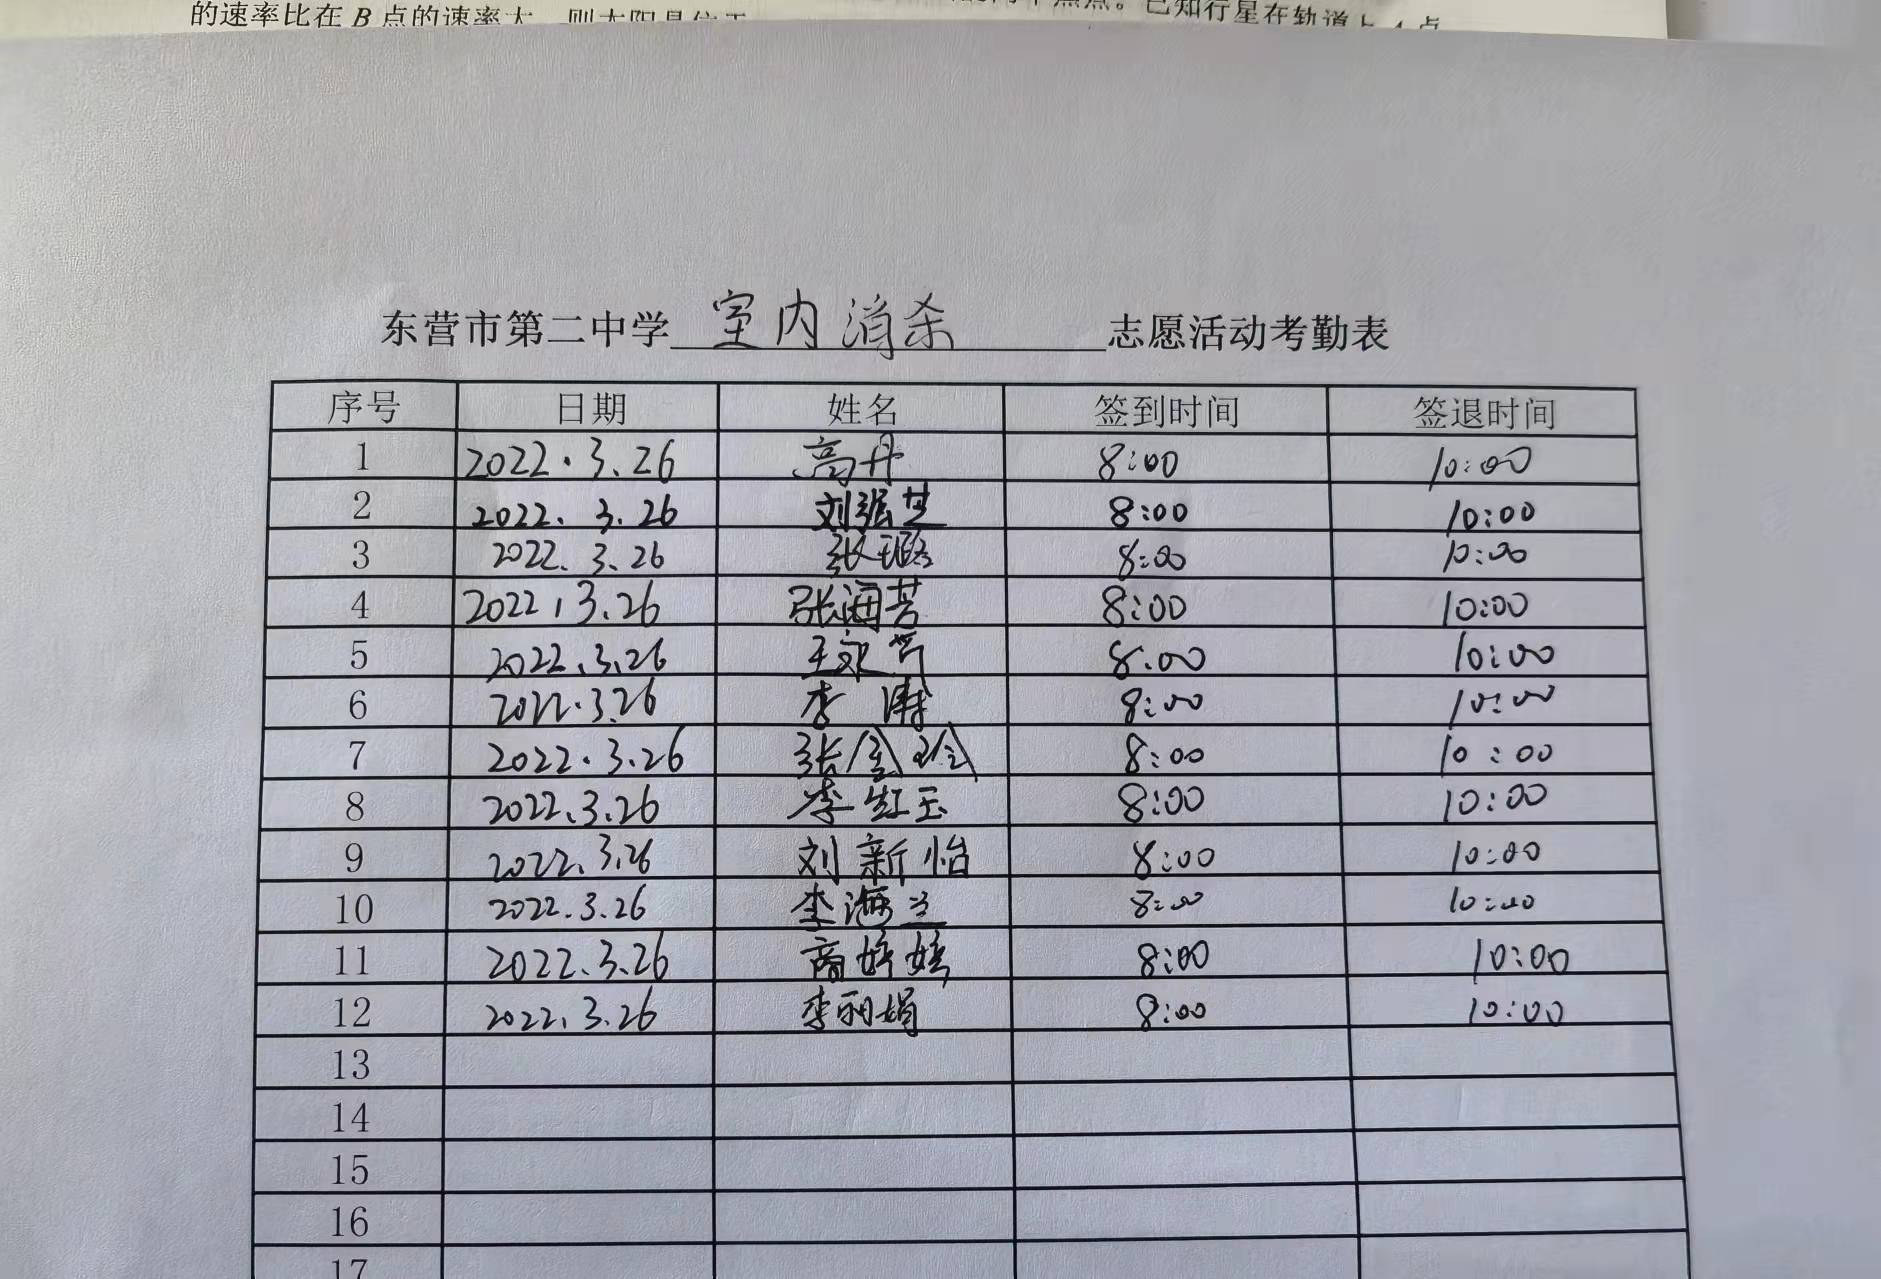 的速率比在 B 点的速率大
已知行星在轨道上 A 点
东营市第二中学 室内消杀 志愿活动考勤表
序号 日期 姓名 签到时间 签退时间
1 2022.3.26 高丹 8:00 10:00
2 2022.3.26 8:00 10:00
3 2022.3.26 张璐 8:00 10:00
4 2022.3.26 张海芳 8:00 10:00
5 2022.3.26 8:00 10:00
6 2022.3.26 李涛 8:00 10:00
7 2022.3.26 张金玲 8:00 10:00
8 2022.3.26 李红玉 8:00 10:00
9 2022.3.26 刘新怡 8:00 10:00
10 2022.3.26 李海兰 8:00 10:00
11 2022.3.26 商婷婷 8:00 10:00
12 2022.3.26 李丽娟 8:00 10:00
13
14
15
16
17